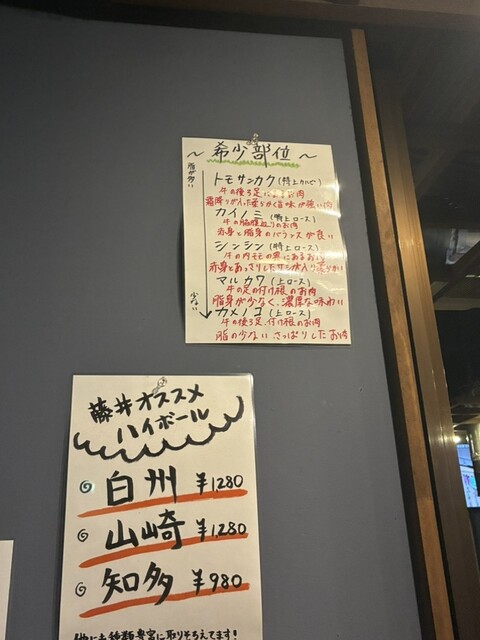 ～希少部位～
脂が多い
トモサンカク(特上カルビ)
牛の後ろ足にあるお肉
霜降りが入った柔らかく旨味が強い肉
カイノミ(特上ロース)
牛の脇腹辺りのお肉
赤身と脂身のバランスが良い
シンシン(特上ロース)
牛の内モモの奥にあるお肉
赤身とあっさりしたサシが入り
マルカワ(上ロース)
牛の足の付け根のお肉
脂身が少なく、濃厚な味わい
カメノコ(上ロース)
牛の後ろ足、付け根のお肉
脂の少ない さっぱりしたお肉
少ない
藤井オススメ
ハイボール
白州 ¥1,280
山崎 ¥1,280
知多 ¥980
他にも種類豊富に取りそろえてます!